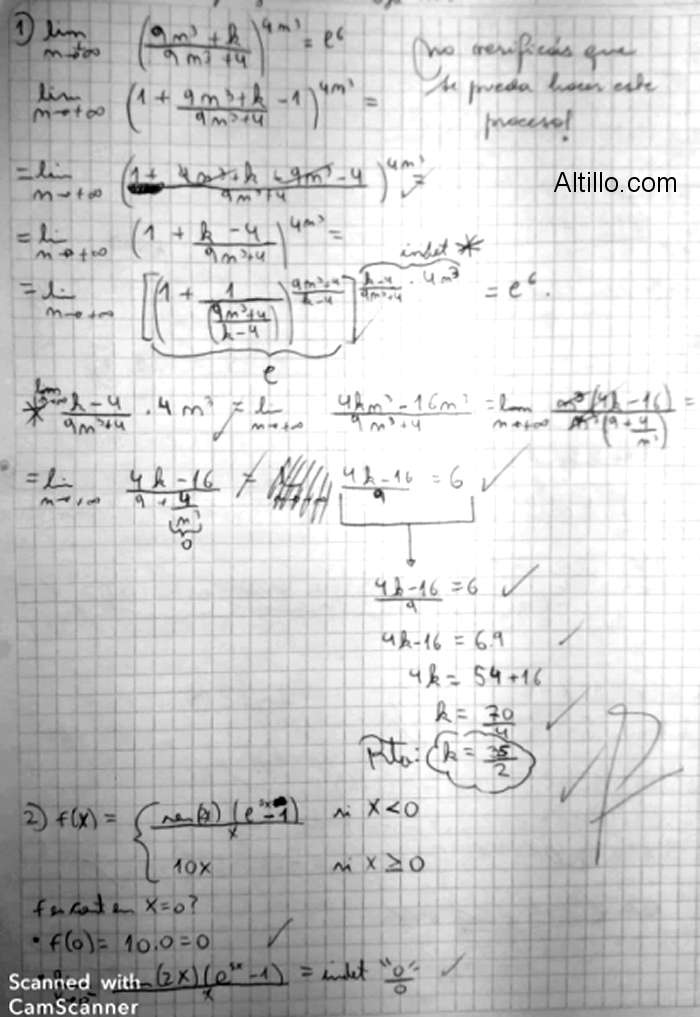 1) lim n→+∞ ((9n³ + k)/(9n³ + 4))^(4n³) = e⁶
no verificás que
se pueda hacer este
proceso!
lim n→+∞ (1 + (9n³+k)/(9n³+4) - 1)^(4n³) =
Altillo.com
= lim n→+∞ ( + k - 9n³ - 4)/(9n³+4))^(4n³) =
= lim n→+∞ (1 + (k-4)/(9n³+4))^(4n³) =
indet *
= lim n→+∞ [(1 + 1/((9n³+4)/(k-4)))^((9n³+4)/(k-4))]^((k-4)/(9n³+4) · 4n³) = e⁶.
e
* lim n→∞ (k-4)/(9n³+4) · 4n³ = lim n→+∞ (4kn³ - 16n³)/(9n³+4) = lim n→+∞ n³(4k-16)/(n³(9 + 4/n³)) =
= lim n→+∞ (4k - 16)/(9 + 4/n³) = (4k-16)/9 = 6 ✓
0
(4k-16)/9 = 6 ✓
4k-16 = 6.9 ✓
4k = 54+16
k = 70/4 ✓
Rta: k = 35/2
2) f(x) = { (e -1)/x si x < 0
10x si x ≥ 0
f es cont en x=0?
• f(0) = 10.0 = 0 ✓
• (2x)(e -1)/x = indet "0/0" ✓
Scanned with
CamScanner